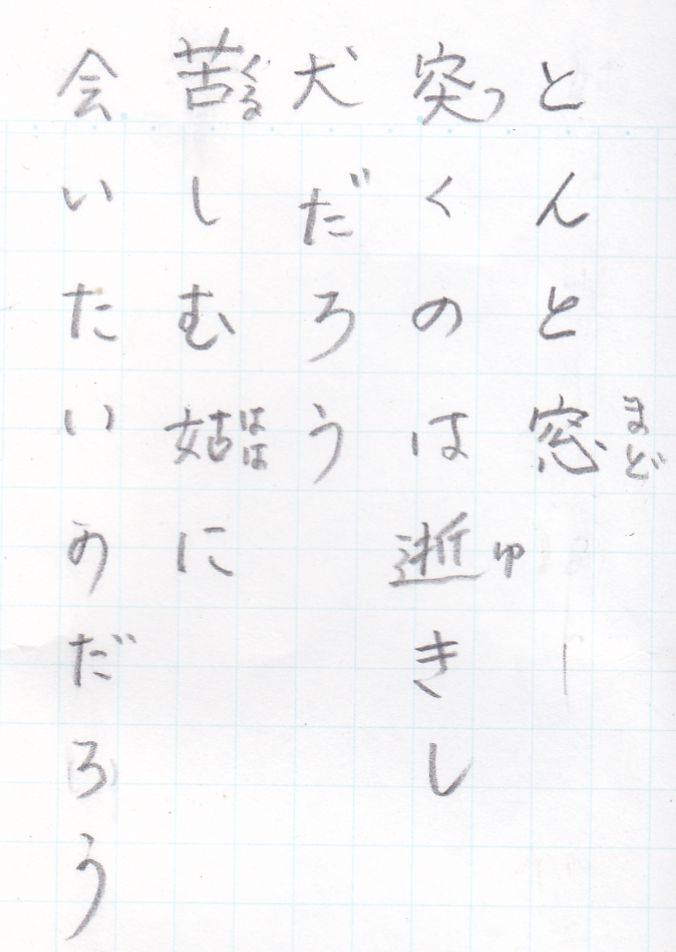 とんと窓まど
突つくのは逝ゆきし
犬だろう
苦くるしむ姑ははに
会いたいのだろう